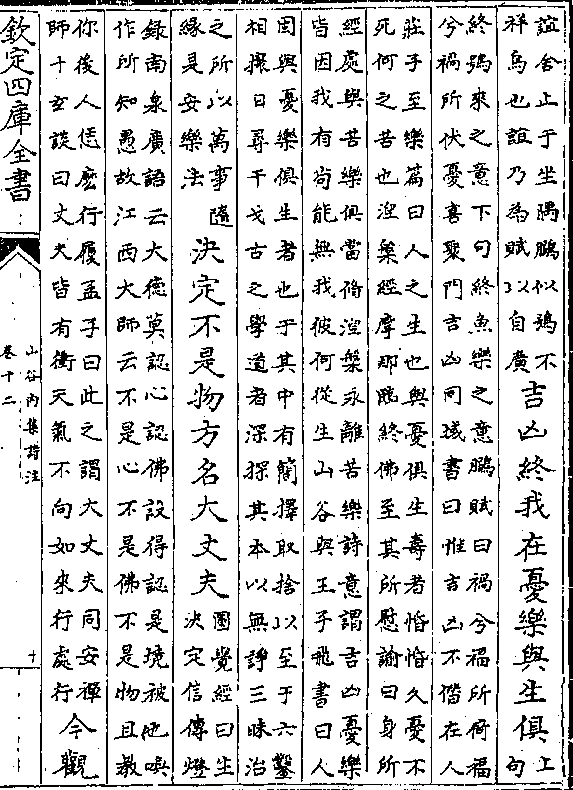 誼舍止于坐隅鵩似鴞不
祥鳥也誼乃為賦以自廣
吉凶終我在憂樂與生俱
上
句
終鴞來之意下句終魚樂之意鵩賦曰禍兮福所倚福
兮禍所伏憂喜聚門吉凶同域書曰惟吉凶不僭在人
莊子至樂篇曰人之生也與憂俱生壽者惛惛久憂不
死何之苦也湼槃經摩那臨終佛至其所慰諭曰身所
經處與苦樂俱當脩湼槃永離苦樂詩意謂吉凶憂樂
皆因我有尚能無我彼何從生山谷與王子飛書曰人
固與憂樂俱生者也于其中有簡擇取捨以至于六鑿
相攘日尋干戈古之學道者深探其本以無諍三昧治
之所以萬事隨
緣是安樂法
決定不是物方名大丈夫
圓覺經曰生
決定信傳燈
録南泉廣語云大德莫認心認佛設得認是境被他喚
作所知愚故江西大師云不是心不是佛不是物且教
你後人恁麽行履孟子曰此之謂大丈夫同安禪
師十玄談曰丈夫皆有衝天氣不向如來行處行
今觀
欽定四庫全書
山谷内集詩注
卷十二
十